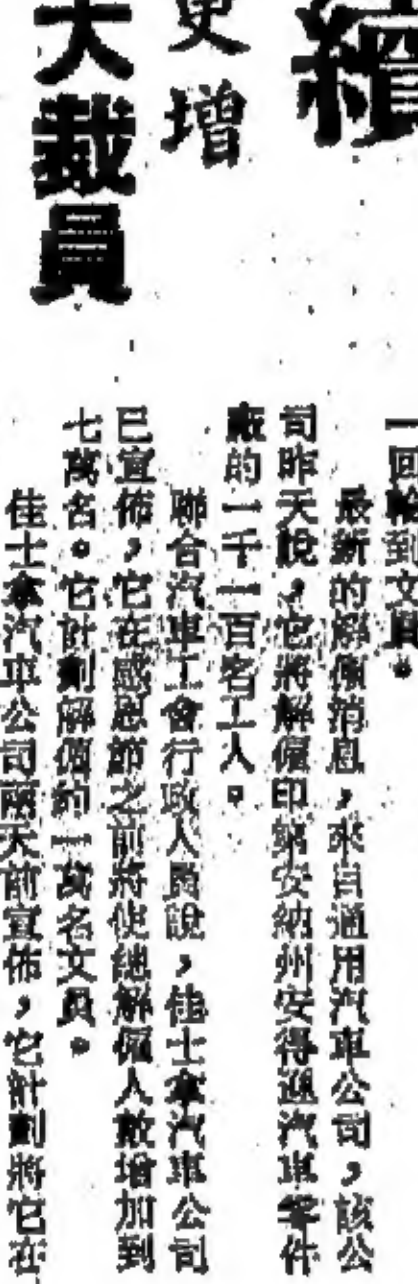 續
更增
大裁員
一回輪到文員。
最新的解僱消息,來自通用汽車公司,該公
司昨天說,它將解僱印第安納州安得遜汽車零件
廠的一千一百名工人。
聯合汽車工會行政人員說,佳士拿汽車公司
已宣佈,它在感恩節之前將使總解僱人數增加到
七萬名。它計劃解僱約一萬名文員。
佳士拿汽車公司兩天前宣佈,它計劃將它在